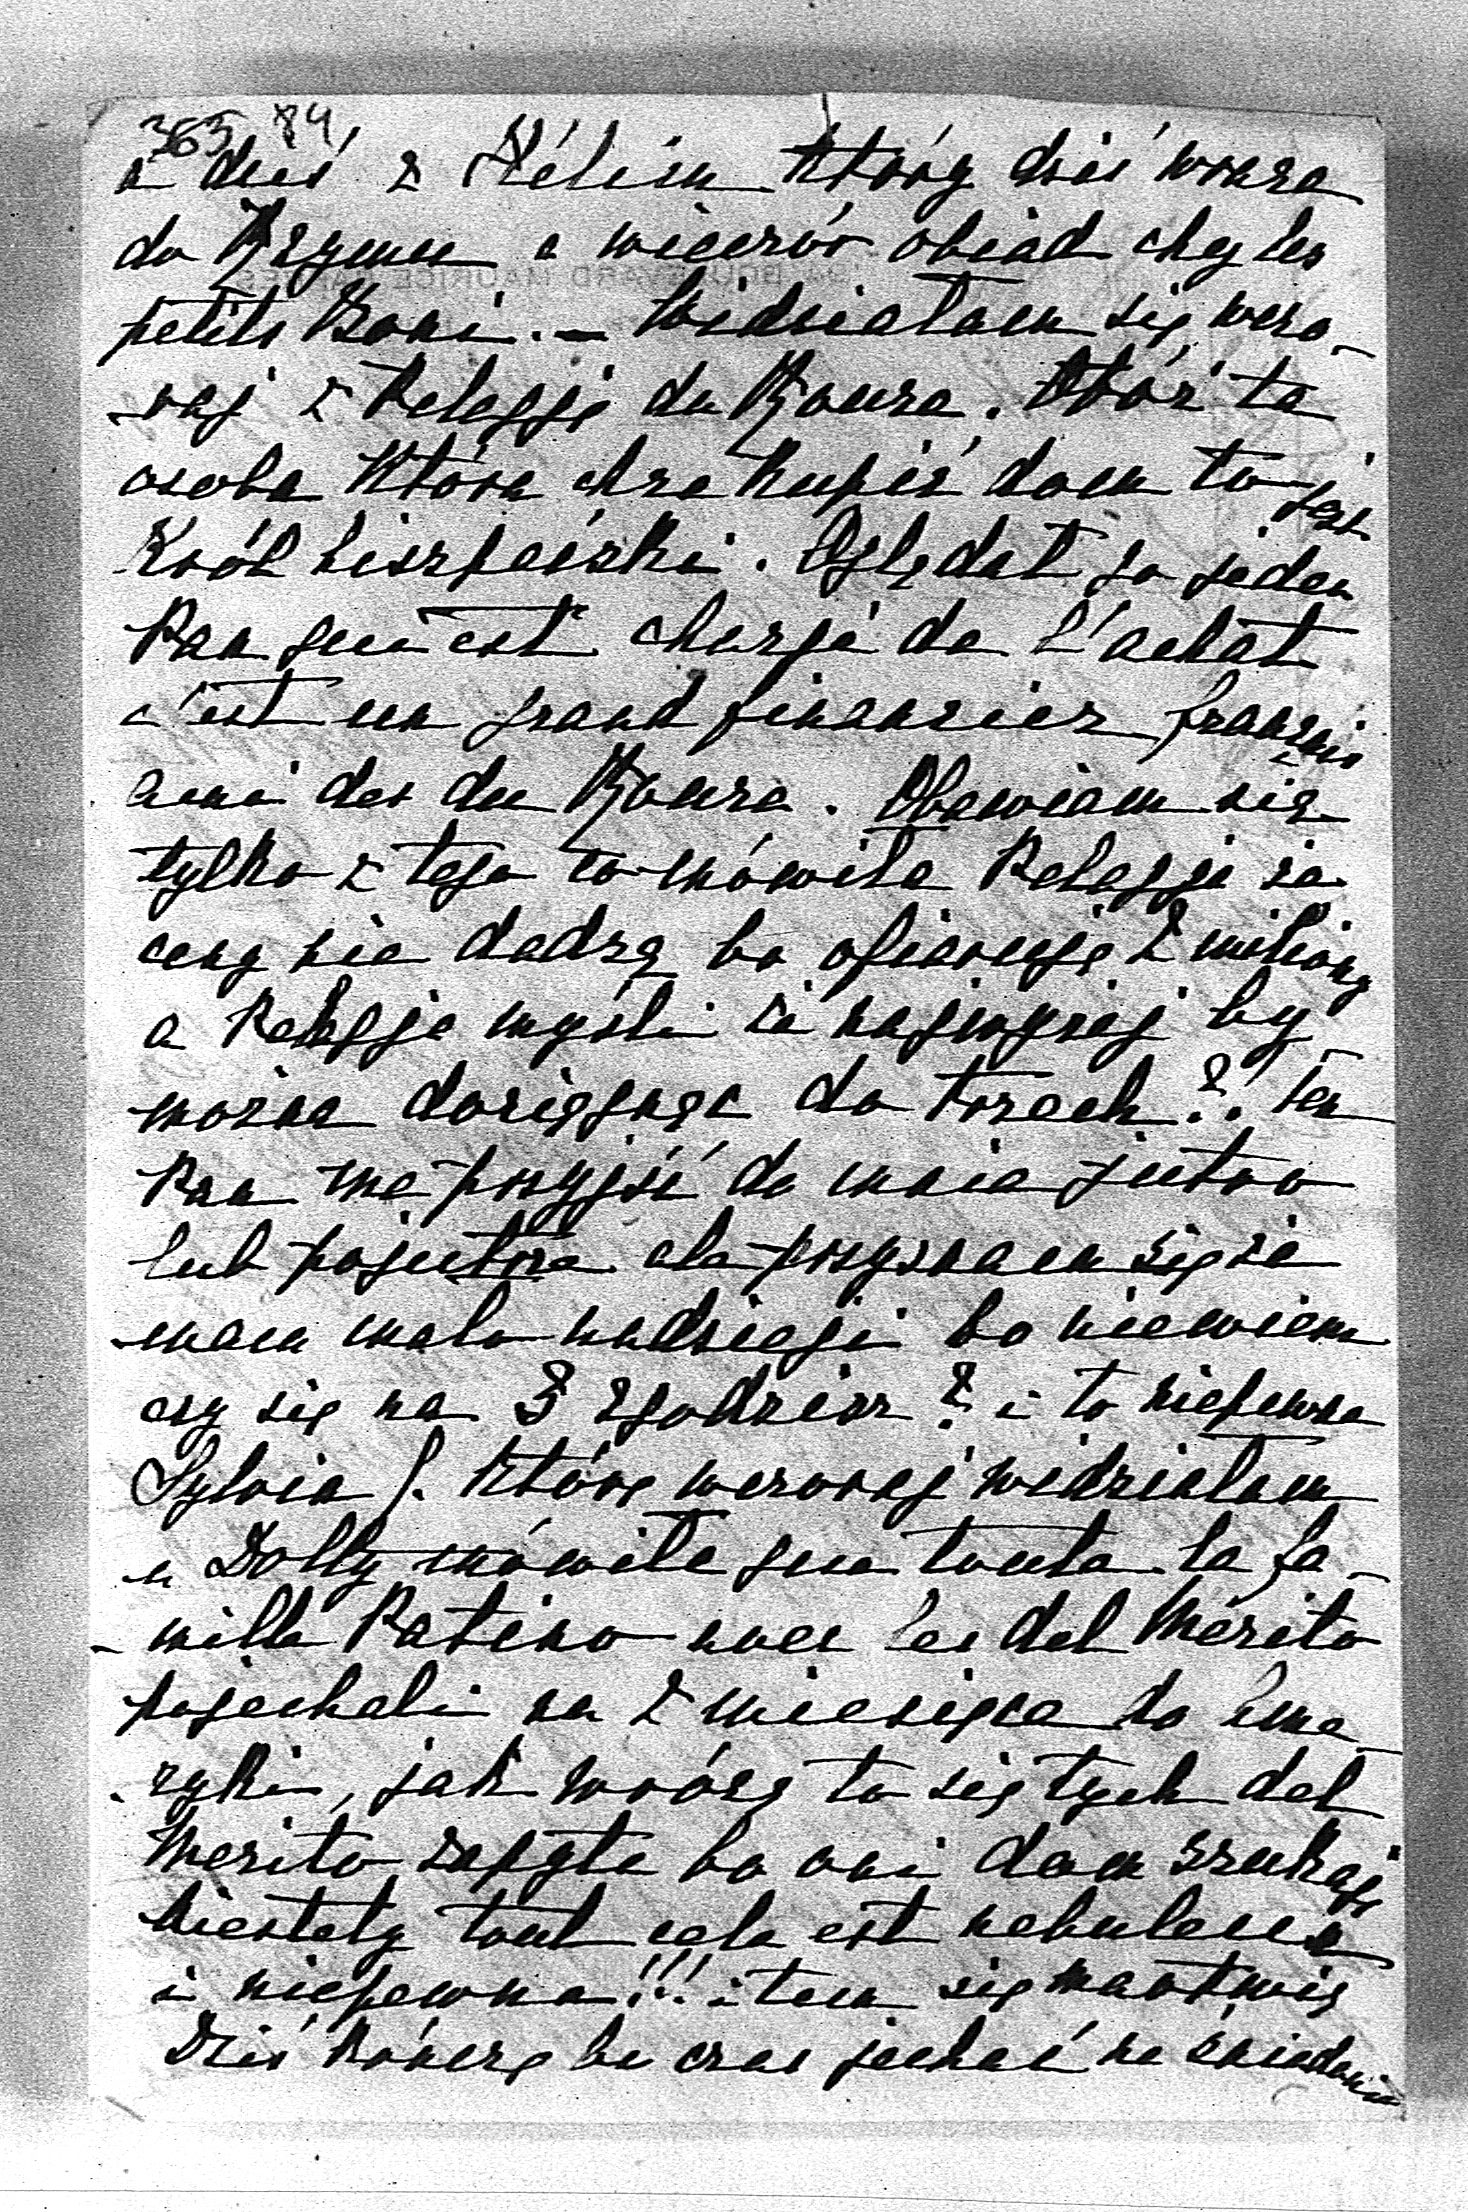 365 84
a dziś z Hélien który dziś wraca
do Rzymu a wieczór obiad chez les
petits Boni. — Widziałam się wczo-
-raj z Pelagją du Boura. Otóż ta
osoba która chce kupić dom to jest
Król hiszpański. Oglądał go jeden
Pan qui est chargé de l'achat
c'est un grand financier français
ami des du Boura. Obawiam się
tylko z tego co mówiła Pelagja że
ceny nie dadzą bo ofiarują 2 miliony
a Pelagja myśli że najwyżej by
można dociągnąć do trzech?. Ten
Pan ma przyjść do mnie jutro
lub pojutrze ale przyznam się że
mam mało nadzieji bo niewiem
czy się na 3 zgodzisz? i to niepewne
Sylvia S. którą wczoraj widziałam
u Dolly mówiła que toute la fa-
-mille Patino avec les del Mérito
pojechali na 2 miesiące do Ame-
-ryki, jak wrócą to się tych del
Merito zapyta bo oni dom szukają
niestety tout cela est nebuleux
i niepewne!!! i tem się martwię
Dziś kończę bo czas jechać na śniadanie